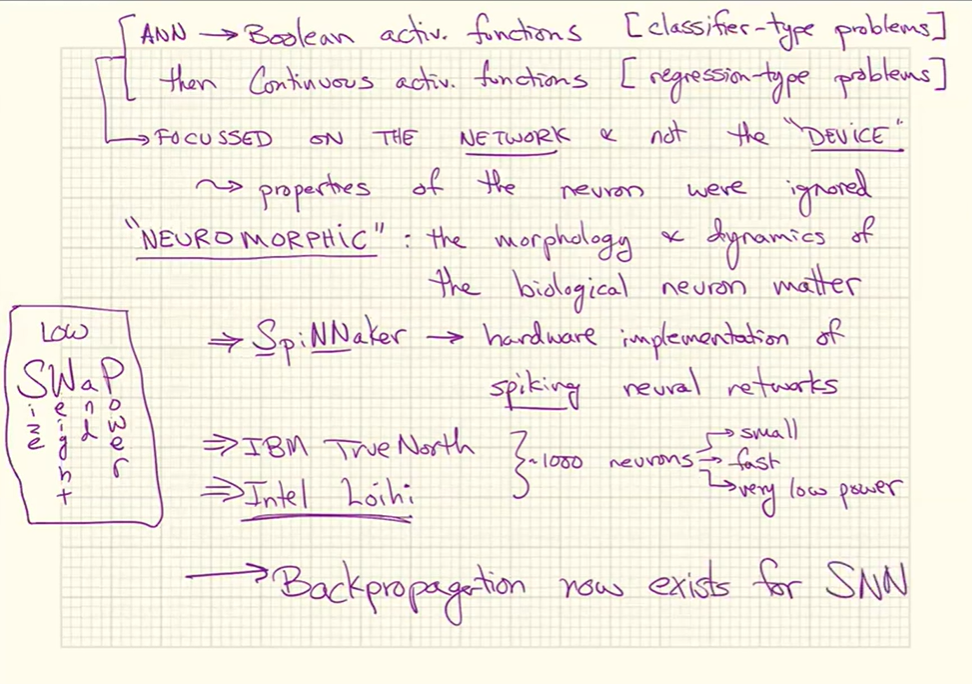 ANN → Boolean activ. functions [classifier-type problems]
then Continuous activ. functions [regression-type problems]
→ FOCUSSED ON THE NETWORK & not the "DEVICE"
⤳ properties of the neuron were ignored
"NEUROMORPHIC" : the morphology & dynamics of
the biological neuron matter
LOW
SWaP
Size
Weight
and
Power
⇒ SpiNNaker → hardware implementation of
spiking neural networks
⇒ IBM TrueNorth
⇒ Intel Loihi
} ~1000 neurons
→ small
→ fast
→ very low power
→ Backpropagation now exists for SNN